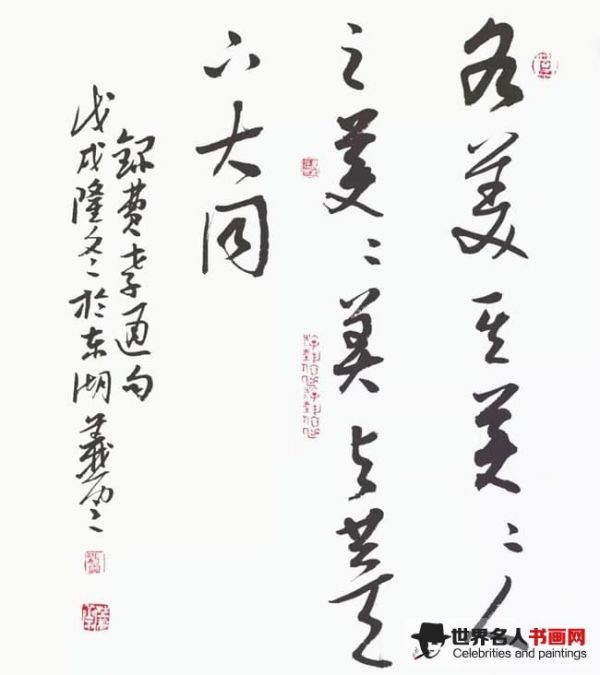 各美其美〻人
之美〻美与共天
下大同
録费孝通句
戊戌隆冬於东湖
世界名人书画网
Celebrities and paintings